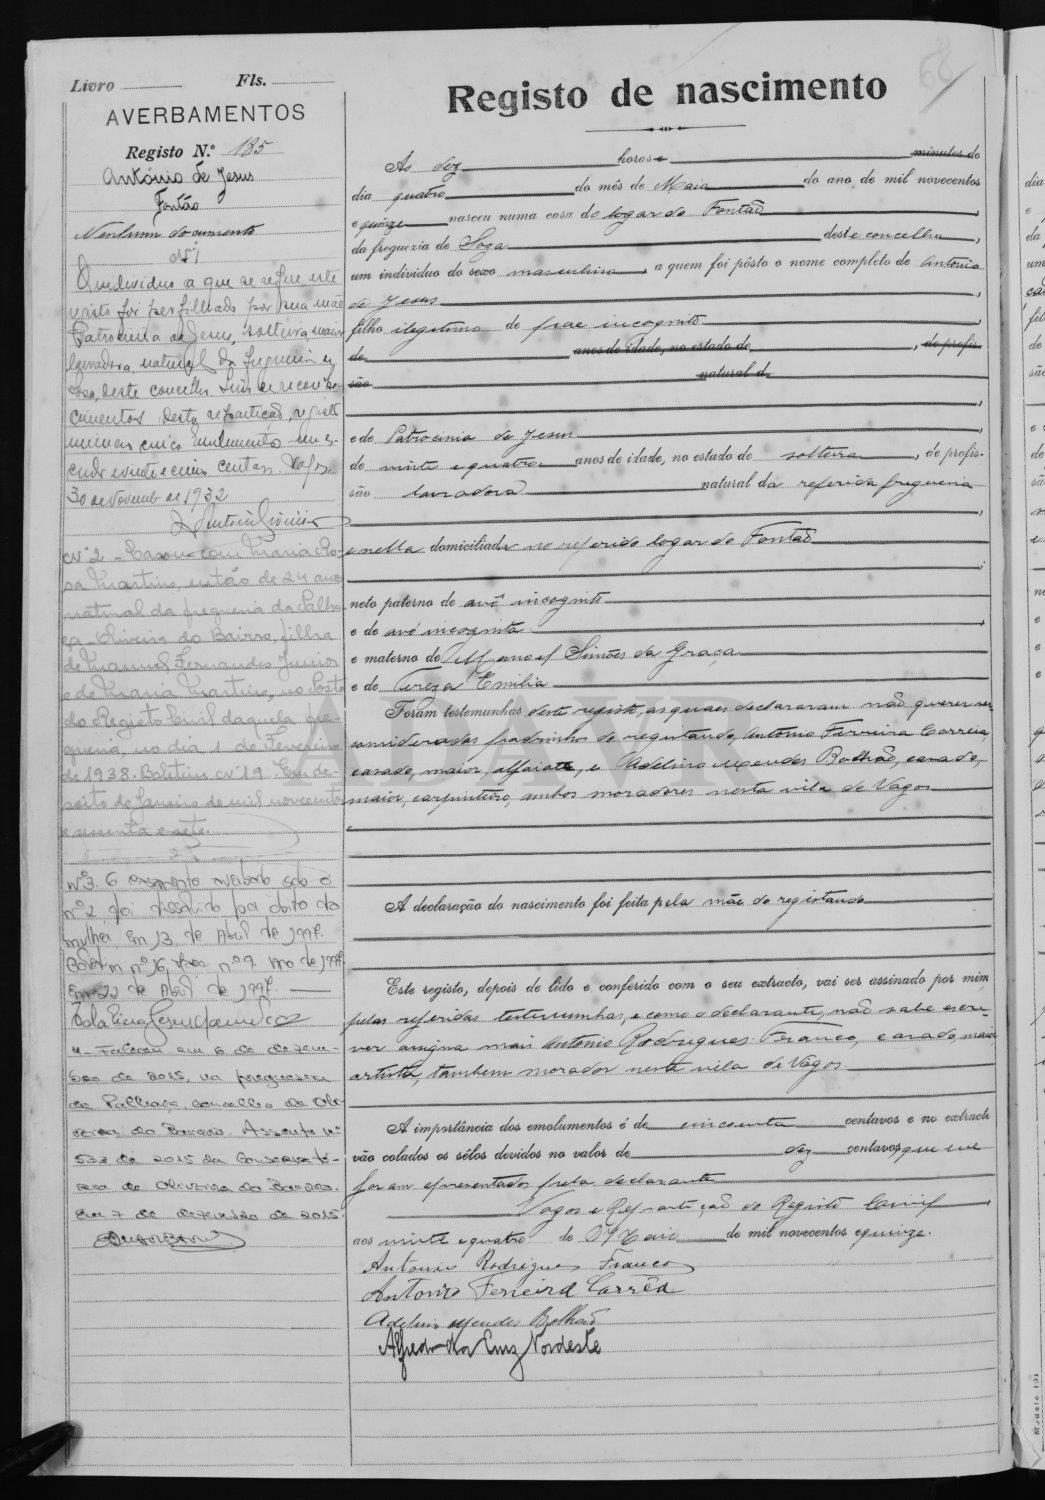 Livro Fls.
AVERBAMENTOS
Registo N.º 185
António de Jesus
Fontão
Nenhum documento
Nº 1
O individuo a que se refere este
registo foi perfilhado por sua mãe
Patrocinia de Jesus, solteira, maior
lavradora, natural da freguesia de
Soza, deste concelho.
cimentos desta repartição, registo
numero cinco
30 de Novembro de 1932
Nº 2 - Casou com Maria Ro-
sa Martins, então de 24 anos
natural da freguesia da Palha-
ça - Oliveira do Bairro, filha
de Manuel Fernandes Junior
e de Maria Martins, no Posto
do Registo Civil daquela fre-
guesia, no dia 1 de Fevereiro
de 1938. Boletim Nº 19. Em de-
zoito de Janeiro de mil novecentos
e sessenta e sete.
Nº 3. O casamento averbado sob o
nº 2 foi dissolvido por óbito da
mulher em 13 de Abril de 1997.
Boletim nº 16, nº 9 ano de 1997
Em 22 de Abril de 1997.
4 - Faleceu em 6 de dezem-
bro de 2015, na freguesia
da Palhaça, concelho de Oli-
veira do Bairro. Assento nº
533 de 2015 da Conservató-
ria de Oliveira do Bairro.
Em 7 de dezembro de 2015.
Registo de nascimento
As dez horas e minutos do
dia quatro do mês de Maio do ano de mil novecentos
e quinze nasceu numa casa do logar do Fontão,
da freguezia de Soza deste concelho,
um individuo do sexo masculino, a quem foi pôsto o nome completo de Antonio
de Jesus,
filho ilegitimo de pae incognito,
de anos de idade, no estado de, de profis-
são natural d
e de Patrocinia de Jesus,
de vinte e quatro anos de idade, no estado de solteira, de profis-
são lavradora natural da referida freguesia,
e nella domiciliada no referido logar do Fontão;
neto paterno de avô incognito
e de avó incognita,
e materno de Manoel Simões da Graça
e de Tereza Emilia
Foram testemunhas deste registo, as quaes declararam não querer ser
consideradas padrinhos do registando, Antonio Ferreira Correia,
casado, maior, alfaiate, e Adelino Mendes Bolhão, casado,
maior, carpinteiro, ambos moradores nesta vila de Vagos
A declaração do nascimento foi feita pela mãe do registando
Este registo, depois de lido e conferido com o seu extracto, vai ser assinado por mim
pelas referidas testemunhas, e como a declarante não sabe escre-
ver assigna mais Antonio Rodrigues Franco, casado, maior
artista, tambem morador nesta vila de Vagos.
A importância dos emolumentos é de cincoenta centavos e no extracto
vão colados os sêlos devidos no valor de dez centavos, que me
foram apresentados pela declarante
Vagos e Repartição do Registo Civil
aos vinte e quatro de Maio de mil novecentos e quinze.
Antonio Rodrigues Franco
Antonio Ferreira Corrêa
Adelino Mendes Bolhão
Alfredo da Cruz Nordeste